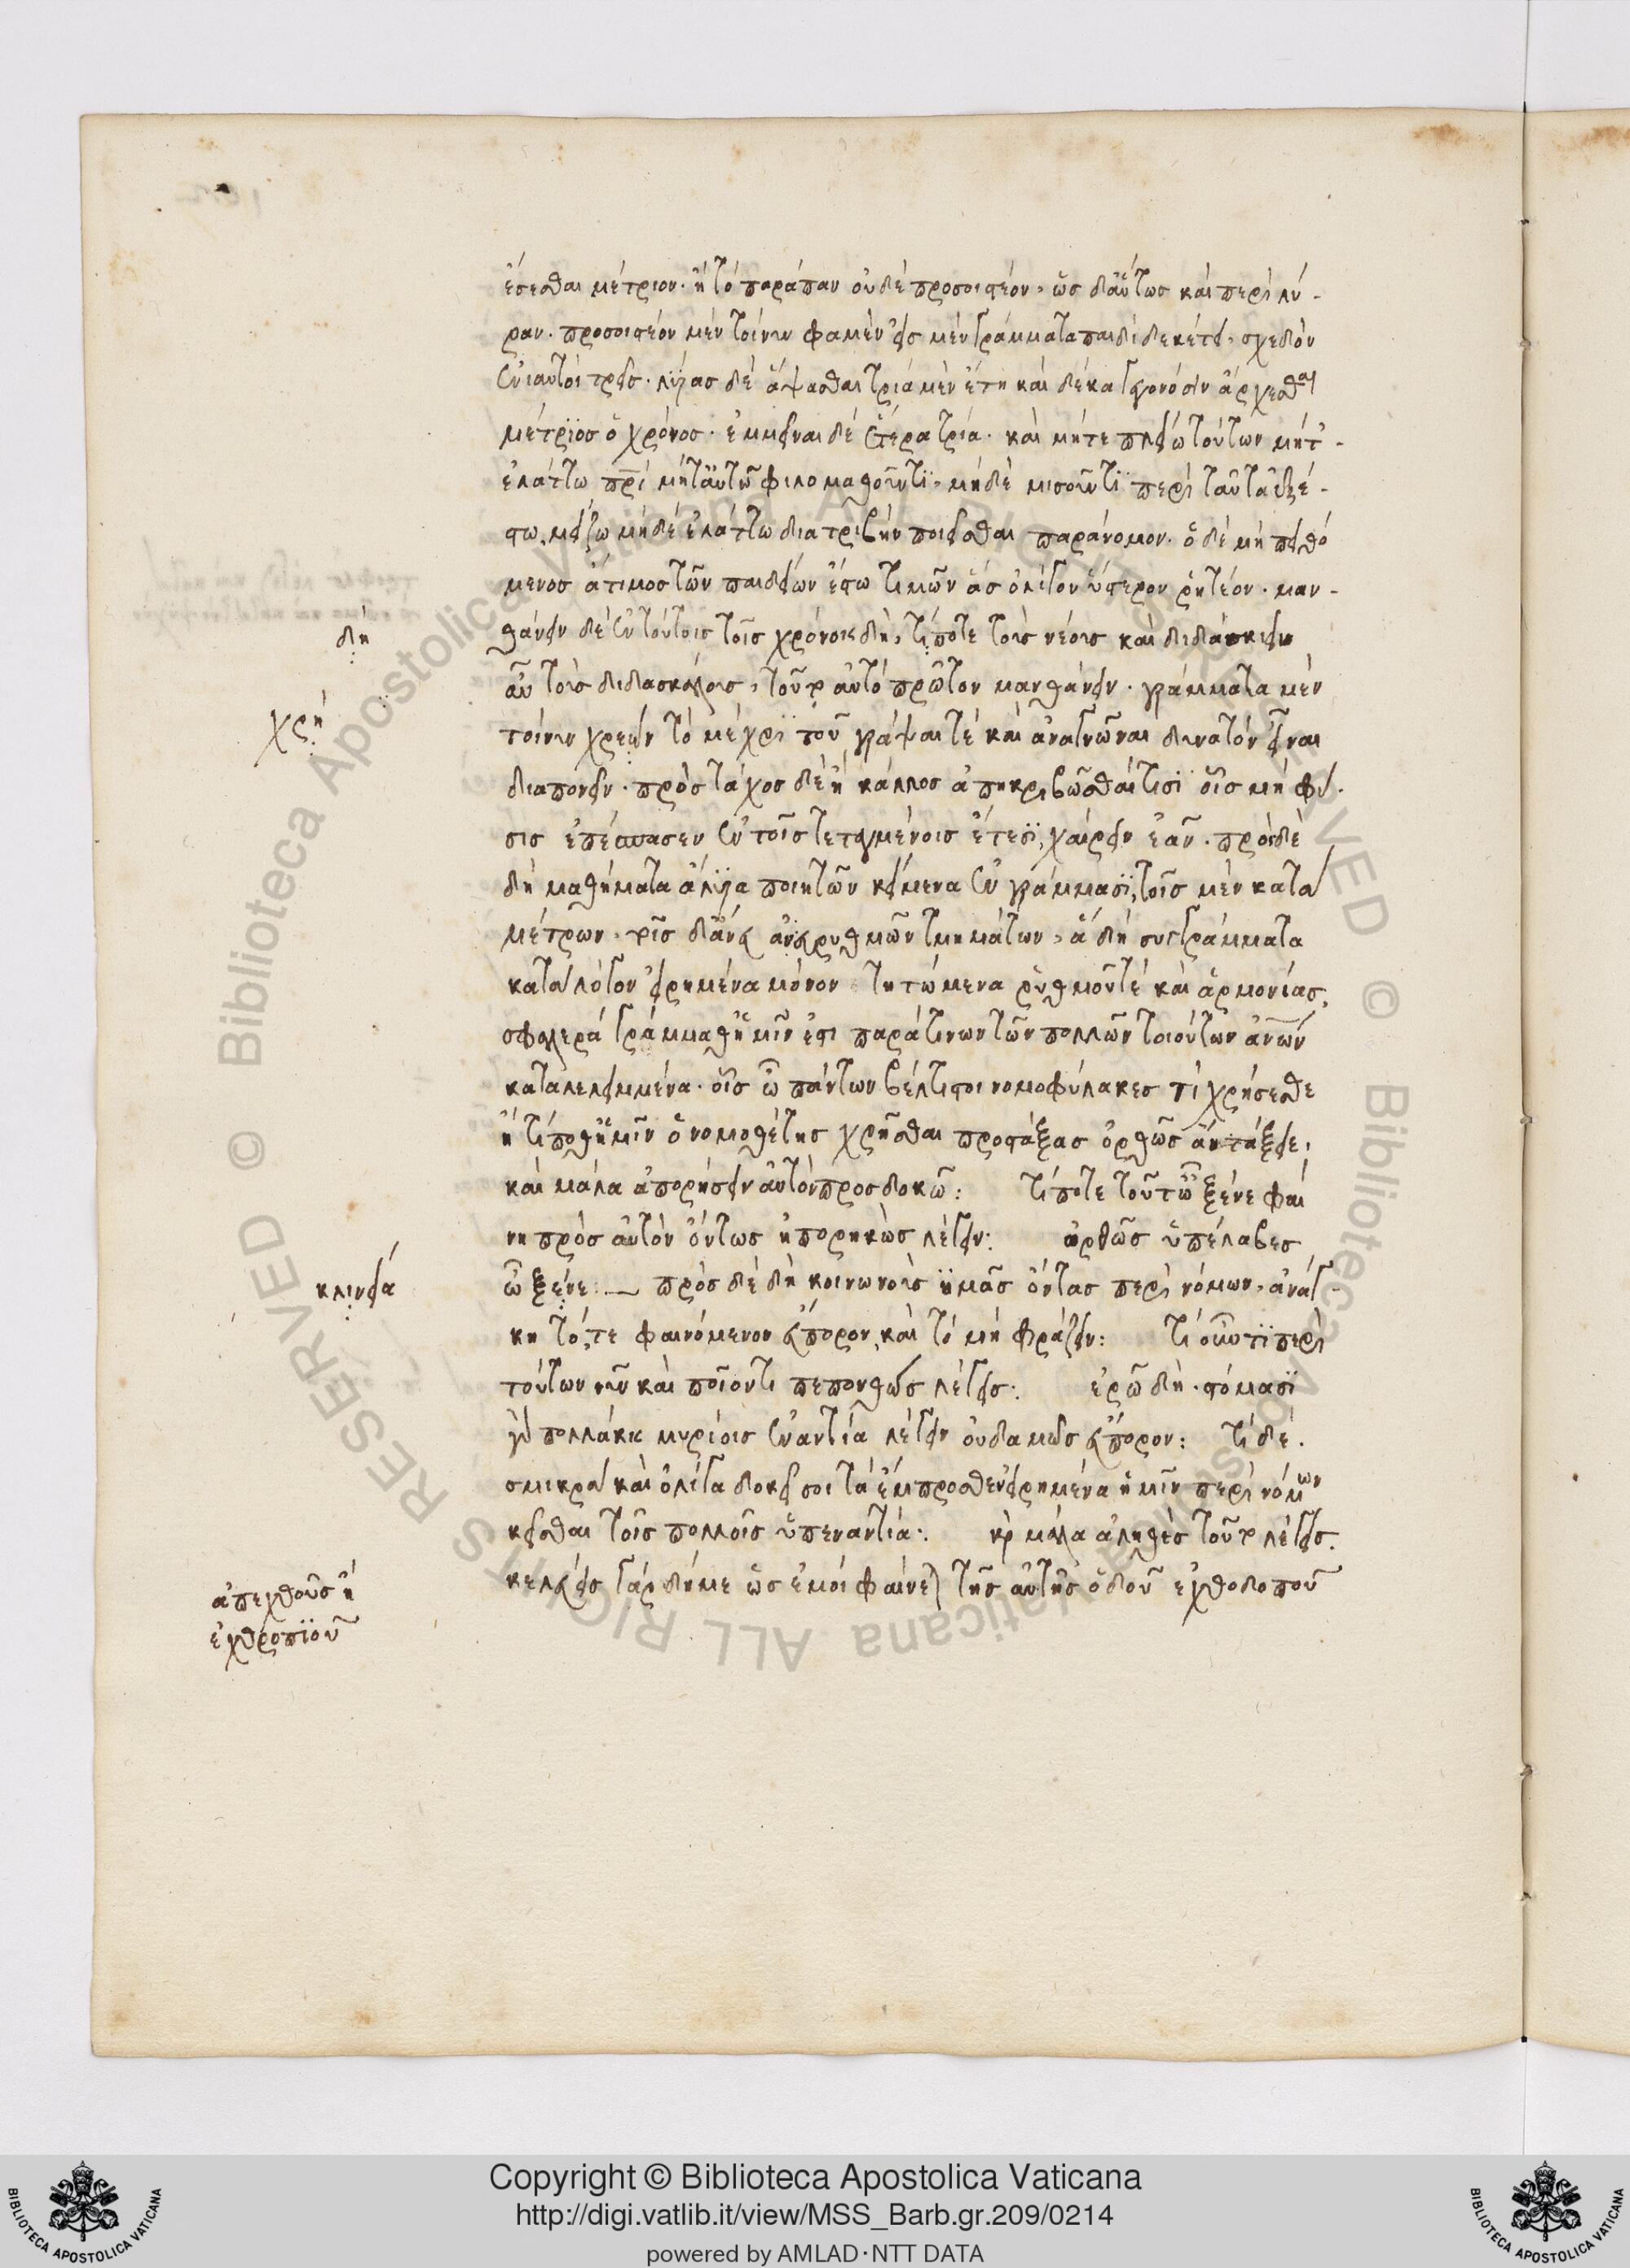 ἔσεσθαι μέτριον· ἢ τὸ παράπαν οὐδὲ προσοιστέον, ὡς δ' αὔτως καὶ περὶ λύ-
ραν. προσοιστέον μὲν τοίνυν φαμὲν εἰς μὲν γράμματα παιδὶ δεκέτει, σχεδὸν
ἐνιαυτοὶ τρεῖς· λύρας δὲ ἅψασθαι τρία μὲν ἔτη καὶ δέκα γεγονόσιν ἄρχεσθαι
μέτριος ὁ χρόνος· ἐμμεῖναι δὲ ἕτερα τρία· καὶ μήτε πλείω τούτων μήτ'
ἐλάττω πρὶ μήτ' αὐτῶ φιλομαθοῦντι, μηδὲ μισοῦντι περὶ ταῦτα ἐξέ-
στω μείζω μηδὲ ἐλάττω διατριβὴν ποιεῖσθαι παράνομον· ὁ δὲ μὴ πειθό
μενος ἄτιμος τῶν παιδείων ἔστω τιμῶν ἃς ὀλίγον ὕστερον ῥητέον· μαν-
θάνειν δὲ ἐν τούτοις τοῖς χρόνοις δὴ, τί ποτε τοὺς νέους καὶ διδάσκειν
δὴ
αὖ τοὺς διδασκάλους, τοῦτο αὐτὸ πρῶτον μανθάνειν· γράμματα μὲν
τοίνυν χρεὼν τὸ μέχρι τοῦ γράψαι τὲ καὶ ἀναγνῶναι δυνατὸν εἶναι
χρὴ
διαπονεῖν· πρὸς τάχος δὲ ἢ κάλλος ἀπηκριβῶσθαί τισι οἷς μὴ φύ-
σις ἐπέσπασεν ἐν τοῖς τεταγμένοις ἔτεσι, χαίρειν ἐᾶν· πρὸς δὲ
δὴ μαθήματα ἄλυρα ποιητῶν κείμενα ἐν γράμμασι, τοῖς μὲν κατὰ
μέτρων, τοῖς δ' ἄνευ ἄνευ ῥυθμῶν τμημάτων, ἃ δὴ συγγράμματα
κατὰ λόγον εἰρημένα μόνον τητώμενα ῥυθμοῦ τὲ καὶ ἁρμονίας,
σφαλερὰ γράμμαθ' ἡμῖν ἐστι παρά τινων τῶν πολλῶν τοιούτων ἀνων
καταλελειμμένα· οἷς ὦ πάντων βέλτιστοι νομοφύλακες τί χρήσεσθε
ἢ τί ποθ' ἡμῖν ὁ νομοθέτης χρῆσθαι προστάξας ὀρθῶς ἂν τάξειε·
καὶ μάλα ἀπορήσειν αὐτὸν προσδοκῶ: τί ποτε τοῦτ' ὦ ξένε φαί
νη πρὸς αὐτὸν ὄντως ἠπορηκὼς λέγειν: ὀρθῶς ὑπέλαβες
ὦ ξένε: — πρὸς δὲ δὴ κοινωνοὺς ὑμᾶς ὄντας περὶ νόμων, ἀνάγ-
κλινεία
κη τό, τε φαινόμενον εὔπορον, καὶ τὸ μὴ φράζειν: τί οὖν τί περὶ
τούτων νῦν καὶ ποῖόν τι πεπονθὼς λέγεις: ἐρῶ δὴ· στόμασι
γὰρ πολλάκις μυρίοις ἐναντία λέγειν οὐδαμῶς εὔπορον: τί δέ·
σμικρὰ καὶ ὀλίγα δοκεῖ σοι τὰ ἔμπροσθεν εἰρημένα ἡμῖν περὶ νόμων
κεῖσθαι τοῖς πολλοῖς ὑπεναντία: καὶ μάλα ἀληθὲς τοῦτο λέγεις.
κελεύεις γὰρ δή με ὡς ἐμοὶ φαίνεται τῆς αὐτῆς ὁδοῦ ἐχθοδοποῦ
ἀπεχθοῦς ἢ
ἐχθροποιοῦ
Copyright © Biblioteca Apostolica Vaticana
http://digi.vatlib.it/view/MSS_Barb.gr.209/0214
powered by AMLAD·NTT DATA